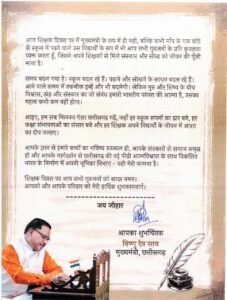 आज शिक्षक दिवस पर मैं मुख्यमंत्री के रूप में ही नहीं, बल्कि कभी गाँव के एक छोटे
से स्कूल में पढ़ने वाले उस विद्यार्थी के रूप में भी आप सभी गुरुजनों के प्रति कृतज्ञता
व्यक्त करता हूँ, जिसने अपने शिक्षकों से मिले संस्कार और सीख को जीवन की पूँजी
माना है।
समय बदल गया है। स्कूल बदल रहे हैं। पढ़ाने और सीखने के साधन बदल रहे हैं।
आने वाले समय में तकनीक इसे और भी बदलेगी। लेकिन गुरु और शिष्य के बीच
विश्वास, स्नेह और संस्कार का जो संबंध हमारी भारतीय परंपरा की आत्मा है, उसका
महत्व कभी कम नहीं होगा।
आइए, हम सब मिलकर ऐसा छत्तीसगढ़ गढ़ें, जहाँ हर स्कूल सपनों का द्वार बने, हर
कक्षा संभावनाओं का संसार बने और हर शिक्षक अपने विद्यार्थी के जीवन में आशा
का दीप जलाए।
आपके ज्ञान से हमारे बच्चों का भविष्य उज्ज्वल हो, आपके संस्कारों से समाज समृद्ध
हो और आपके मार्गदर्शन से छत्तीसगढ़ की नई पीढ़ी आत्मविश्वास के साथ विकसित
भारत के निर्माण में अपनी भूमिका निभाए - यही मेरी कामना है।
शिक्षक दिवस पर आप सभी गुरुजनों को सादर नमन।
आपको और आपके परिवार को मेरी हार्दिक शुभकामनाएँ।
जय जोहार
आपका शुभचिंतक
विष्णु देव साय
मुख्यमंत्री, छत्तीसगढ़